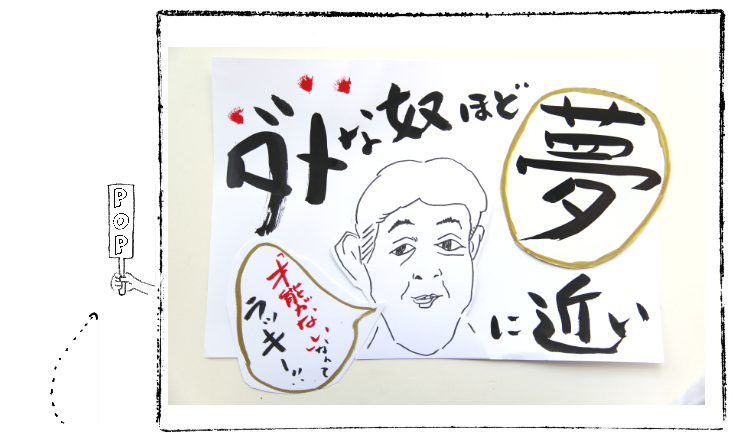 POP
ダメな奴ほど
夢
に近い
「才能がない」なんて
ラッキー!!